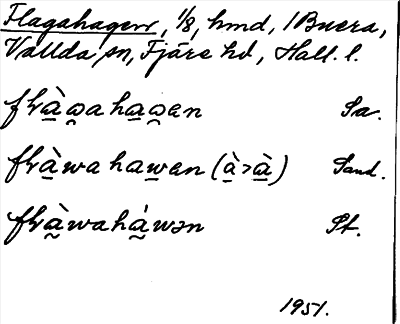 Flagahagen, 1/8, hmd, /Buera,
Vallda sn, Fjäre hd, Hall. l.
flrà̱wahawen Sa.
flrà̱wahawen (à̱>à̱) Sand.
flrà̱wahá̱wən St.
1951.